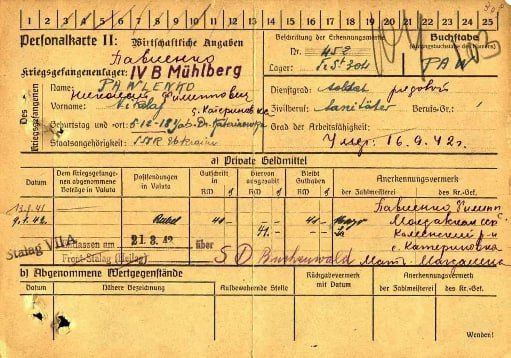 1 2 3 4 5 6 7 8 9 10 11 12 13 14 15 16 17 18 19 20 21 22 23 24 25
Personalkarte II: Wirtschaftliche Angaben
Beschriftung der Erkennungsmarke
Buchstabe
Павленко
Nr. 452
Kriegsgefangenenlager: IV B Mühlberg
Lager: PAW
Des Kriegsgefangenen
Name: PAWLENKO
Николай Филиппович
Dienstgrad: Soldat рядовой
Vorname: Nikolaj
с. Катериновка
Zivilberuf: Sanitäter Berufs-Gr.:
Geburtstag und -ort: 5-12-18
Grad der Arbeitsfähigkeit:
Staatsangehörigkeit: Ukraine
Умер 16.9.42г.
a) Private Geldmittel
Datum
Dem Kriegsgefangenen abgenommene Beträge in Valuta
Postsendungen in Valuta
Gutschrift in RM
Hiervon ausgezahlt RM
Bleibt Guthaben RM
Anerkennungsvermerk
der Zahlmeisterei
des Kr.-Gef.
Rubel 40 - 40 -
Павленко Филипп
Молдавская сср
41 -
с. Катериновка
Stalag VII A
Entlassen am 21. 8. 42 über SD Buchenwald
Мать
Front-Stalag (Heilag)
b) Abgenommene Wertgegenstände
Datum
Nähere Bezeichnung
Aufbewahrende Stelle
Rückgabevermerk mit Datum
Anerkennungsvermerk
der Zahlmeisterei
des Kr.-Gef.